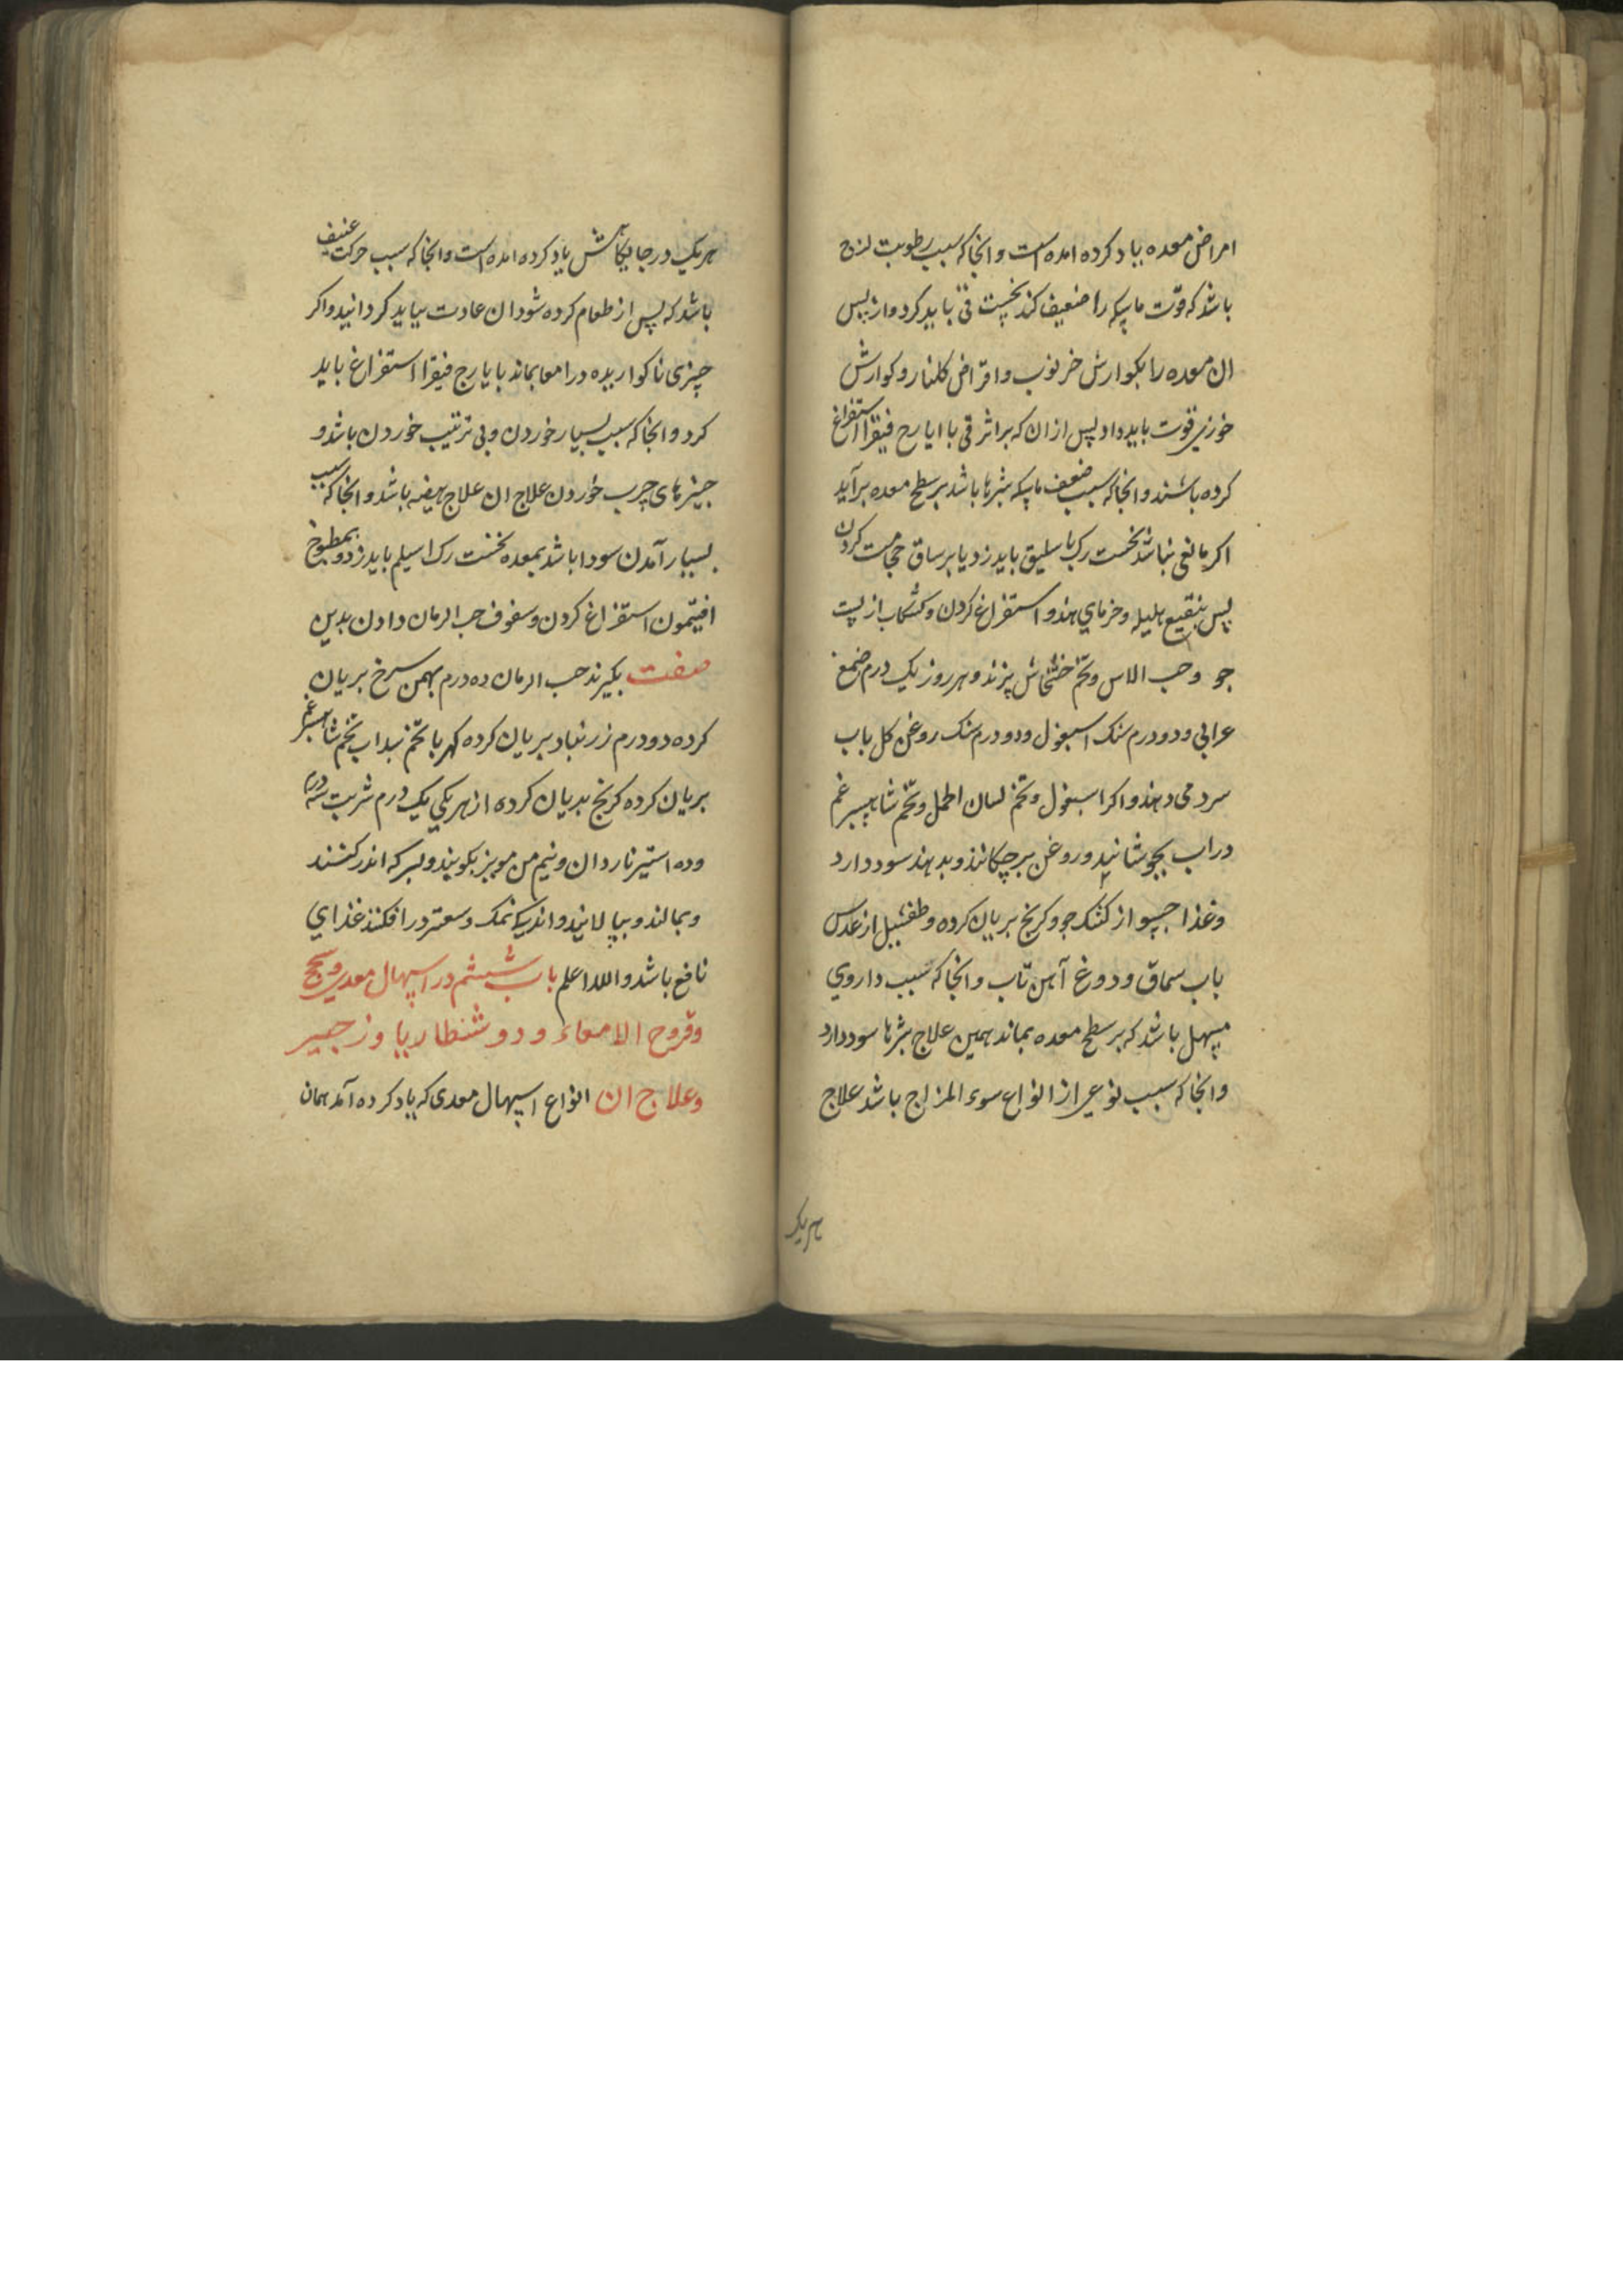 امراض معده یاد کرده امده است و انجا که سبب رطوبت لزج
باشد که قوّت ماسکه را ضعیف کند نخست قی باید کرد و از پس
ان معده را بکوارش خرنوب و اقراض کلنار و کوارش
خوزی قوت باید داد پس از ان که بر اثر قی با ایارج فیقرا استفراغ
کرده باشند و انجا که سبب ضعف ماسکه بثرها باشد بر سطح معده برآید
اکر مانعی نباشد نخست رک باسلیق باید زد یا بر ساق حجامت کردن
پس بنقیع هلیله و خرمای هندو استفراغ کردن و کشکاب از پست
جو و حب الاس و تخم خشخاش پزند و هر روز یک درم صمغ
عرابی و دو درم سنک اسبغول و دو درم سنک روغن کل باب
سرد می دهند و اکر اسبغول و تخم لسان الحمل و تخم شاهسبرغم
در اب بجوشانند و روغن برچکانند و بدهند سود دارد
و غذا حسو از کشک جو و کرنج بریان کرده و طفشیل از عدس
باب سماق و دوغ آهن تاب و انجا که سبب داروی
مسهل باشد که بر سطح معده بماند همین علاج بثرها سود دارد
و انجا که سبب نوعی از انواع سوء المزاج باشد علاج
هریک
هریک در جایکاهش یاد کرده امده است و انجا که سبب حرکت عنیف
باشد که پس از طعام کرده شود ان عادت بباید کردانید و اکر
چیزی ناکواریده در امعا بماند بایارج فیقرا استفراغ باید
کرد و انجا که سبب بسیار خوردن و بی ترتیب خوردن باشد و
چیزهای چرب خوردن علاج ان علاج هیضه باشد و انجا که سبب
بسیار آمدن سودا باشد بمعده نخست رک اسیلم باید زد و بمطبوخ
افتیمون استفراغ کردن و سفوف حب الرمان دادن بدین
صفت بکیرند حب الرمان ده درم بهمن سرخ بریان
کرده دو درم زرنباد بریان کرده کهربا تخم سداب تخم شاهسبرغم
بریان کرده کرنج بریان کرده از هر یکی یک درم شربت سه درم
و ده استیر ناردان و نیم من مویز بکوبند و بسرکه اندر کنند
و بمالند و بپالایند و اندکی نمک و سعتر در افکنند غذای
نافع باشد والله اعلم باب ششم در اسهال معدی و سحج
و قروح الامعاء و دوشنطاریا و زحیر
و علاج ان انواع اسهال معدی که یاد کرده آمد همان